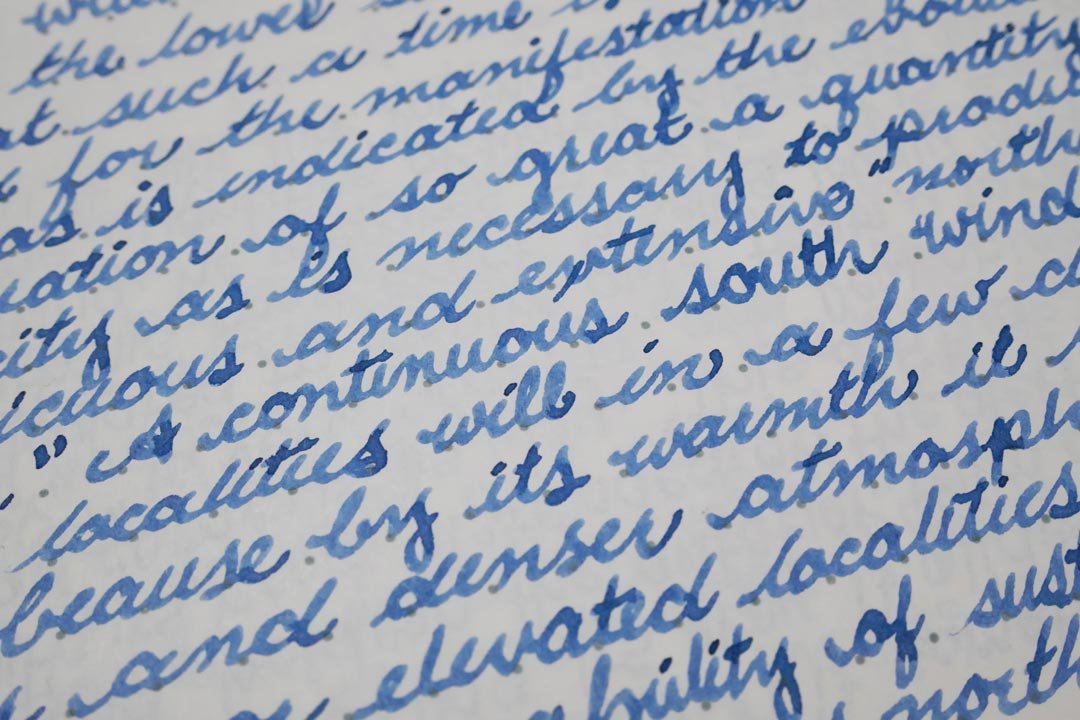 the lower
at such a time
for the manifestation
as is indicated by the
of so great a quantity
as is necessary to
and extensive "north
" A continuous south wind
localities will in a few
because by its warmth it
and denser
elevated localities
of
north